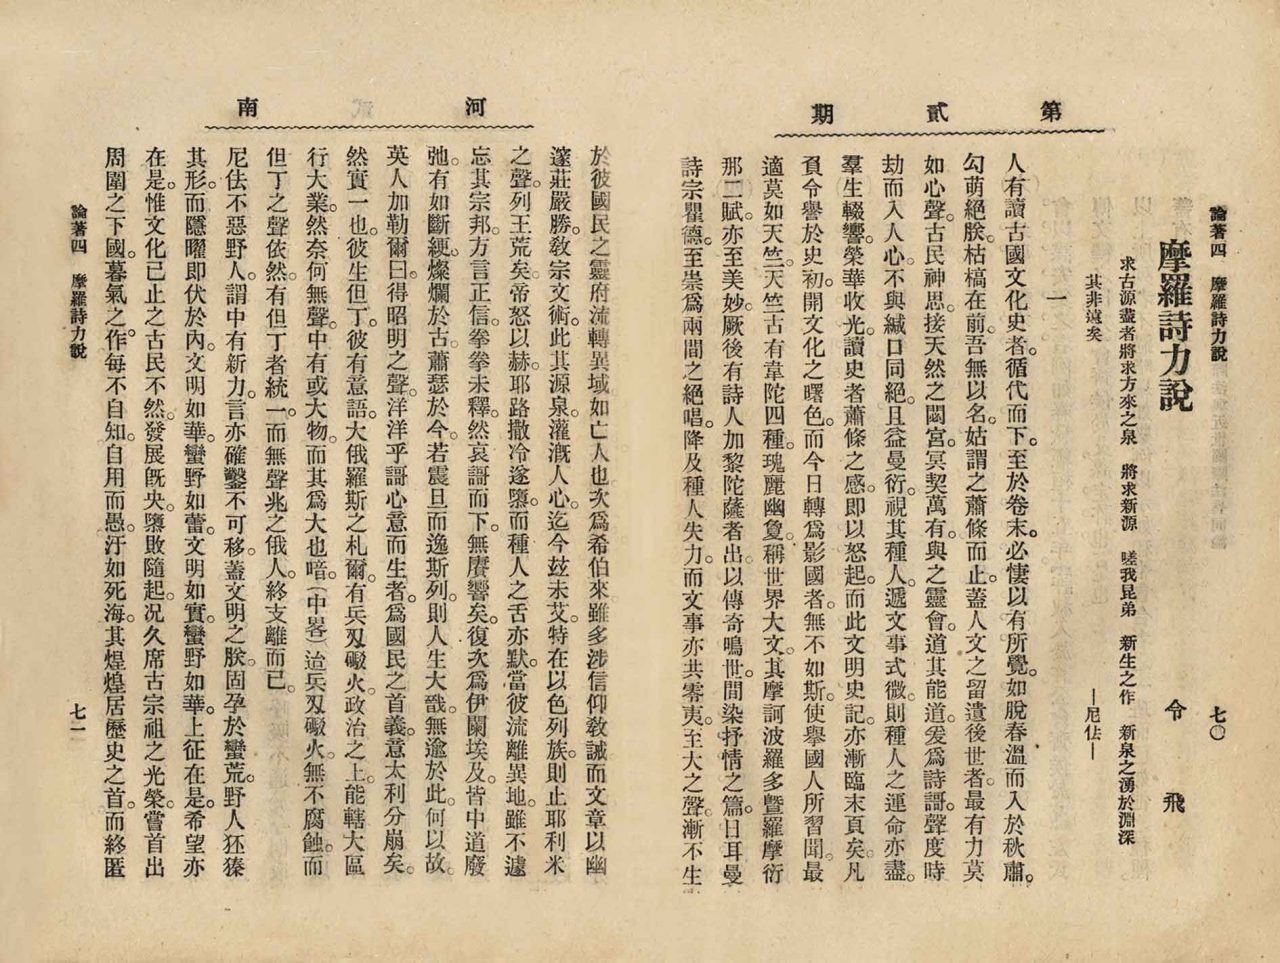 第貳期
論著四　摩羅詩力說　七〇
摩羅詩力說　令飛
求古源盡者將求方來之泉　將求新源　嗟我昆弟　新生之作　新泉之湧於淵深
其非遠矣　—尼佉—
一
人有讀古國文化史者。循代而下。至於卷末。必悽以有所覺。如脫春溫而入於秋肅。
勾萌絕朕。枯槁在前。吾無以名。姑謂之蕭條而止。蓋人文之留遺後世者。最有力莫
如心聲。古民神思。接天然之閟宮。冥契萬有。與之靈會。道其能道。爰爲詩謌。聲度時
劫而入人心。不與緘口同絕。且益曼衍。視其種人。遞文事式微。則種人之運命亦盡。
羣生輟響。榮華收光。讀史者蕭條之感。即以怒起。而此文明史記。亦漸臨末頁矣。凡
負令譽於史初。開文化之曙色。而今日轉爲影國者。無不如斯。使舉國人所習聞。最
適莫如天竺。天竺古有韋陀四種。瑰麗幽敻。稱世界大文。其摩訶波羅多暨羅摩衍
那二賦。亦至美妙。厥後有詩人加黎陀薩者出。以傳奇鳴世。間染抒情之篇。日耳曼
詩宗瞿德。至崇爲兩間之絕唱。降及種人失力。而文事亦共零夷。至大之聲。漸不生
河南
於彼國民之靈府。流轉異域。如亡人也。次爲希伯來。雖多涉信仰敎誡。而文章以幽
邃莊嚴勝。敎宗文術。此其源泉。灌漑人心。迄今玆未艾。特在以色列族。則止耶利米
之聲。列王荒矣。帝怒以赫。耶路撒冷遂隳。而種人之舌亦默。當彼流離異地。雖不遽
忘其宗邦。方言正信。拳拳未釋。然哀謌而下。無賡響矣。復次爲伊闌埃及。皆中道廢
弛。有如斷綆。燦爛於古。蕭瑟於今。若震旦而逸斯列。則人生大戩。無逾於此。何以故。
英人加勒爾曰。得昭明之聲。洋洋乎謌心意而生者。爲國民之首義。意太利分崩矣。
然實一也。彼生但丁。彼有意語。大俄羅斯之札爾。有兵刄礮火。政治之上。能轄大區
行大業。然奈何無聲。中有或大物。而其爲大也喑。（中畧）迨兵刄礮火。無不腐蝕。而
但丁之聲依然。有但丁者統一。而無聲兆之俄人。終支離而已。
尼佉不惡野人。謂中有新力。言亦確鑿不可移。蓋文明之朕。固孕於蠻荒。野人狉獉
其形。而隱曜即伏於內。文明如華。蠻野如蕾。文明如實。蠻野如華。上征在是。希望亦
在是。惟文化已止之古民不然。發展旣央。隳敗隨起。况久席古宗祖之光榮。嘗首出
周圍之下國。暮氣之作。每不自知。自用而愚。汙如死海。其煌煌居歷史之首。而終匿
論著四　摩羅詩力說　七一